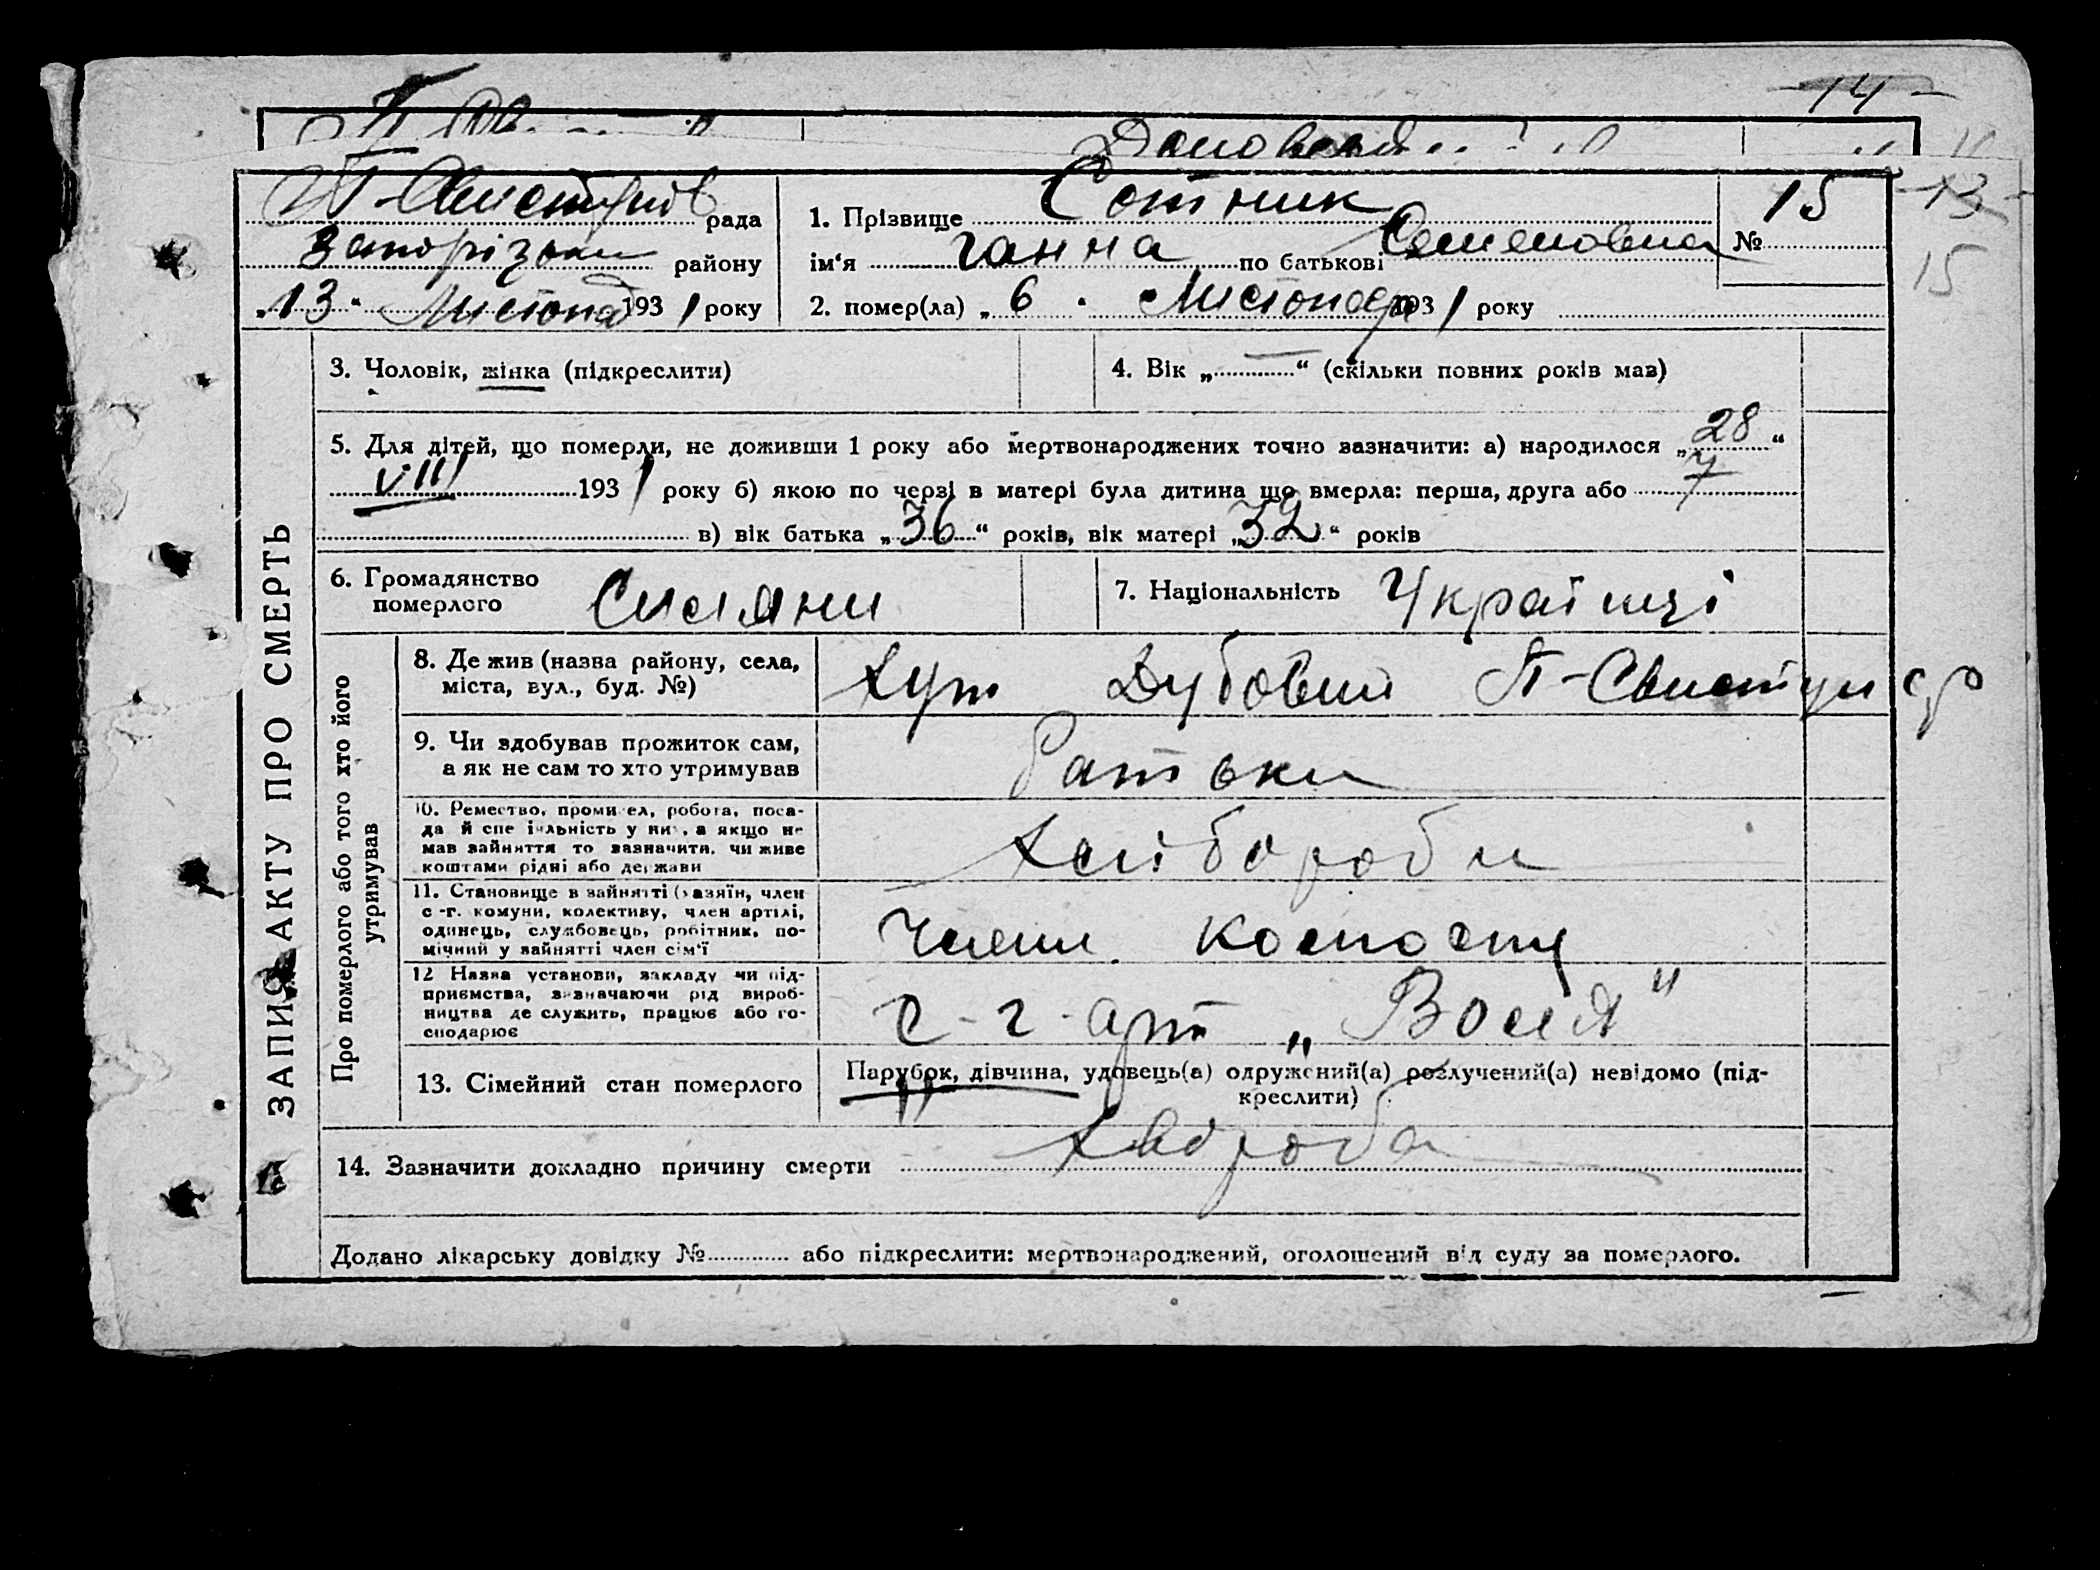 14
П-Свистунів рада
Запорізьки району
„13“ Листопад 1931 року
1. Прізвище Сотник
ім'я Ганна по батькові Семеновна
2. помер(ла) „6“ Листопад 1931 року
№ 15
13
15
ЗАПИС АКТУ ПРО СМЕРТЬ
3. Чоловік, жінка (підкреслити)
4. Вік „—“ (скільки повних років мав)
5. Для дітей, що померли, не доживши 1 року або мертвонароджених точно зазначити: а) народилося „28“
VIII 1931 року б) якою по черзі в матері була дитина що вмерла: перша, друга або 7
в) вік батька „36“ років, вік матері „32“ років
6. Громадянство
померлого
Силяни
7. Національність Українці
Про померлого або того хто його
утримував
8. Де жив (назва району, села,
міста, вул., буд. №)
Хут Дубовий П-Свистун с/р
9. Чи здобував прожиток сам,
а як не сам то хто утримував
батьки
10. Ремество, промисел, робота, поса-
да й спеціяльність у них, а якщо не
мав зайняття то зазначити, чи живе
коштами рідні або держави
Хлібороби
11. Становище в зайнятті (хазяїн, член
с-г. комуни, колективу, член артілі,
одинець, службовець, робітник, по-
мічний у зайнятті член сім'ї
Члени колгоспу
12 Назва установи, закладу чи під-
приємства, зазначаючи рід вироб-
ництва де служить, працює або го-
сподарює
с-г-арт „Воля"
13. Сімейний стан померлого
Парубок, дівчина, удовець(а) одружений(а) розлучений(а) невідомо (під-
креслити)
14. Зазначити докладно причину смерти Хвороба
Додано лікарську довідку № або підкреслити: мертвонароджений, оголошений від суду за померлого.